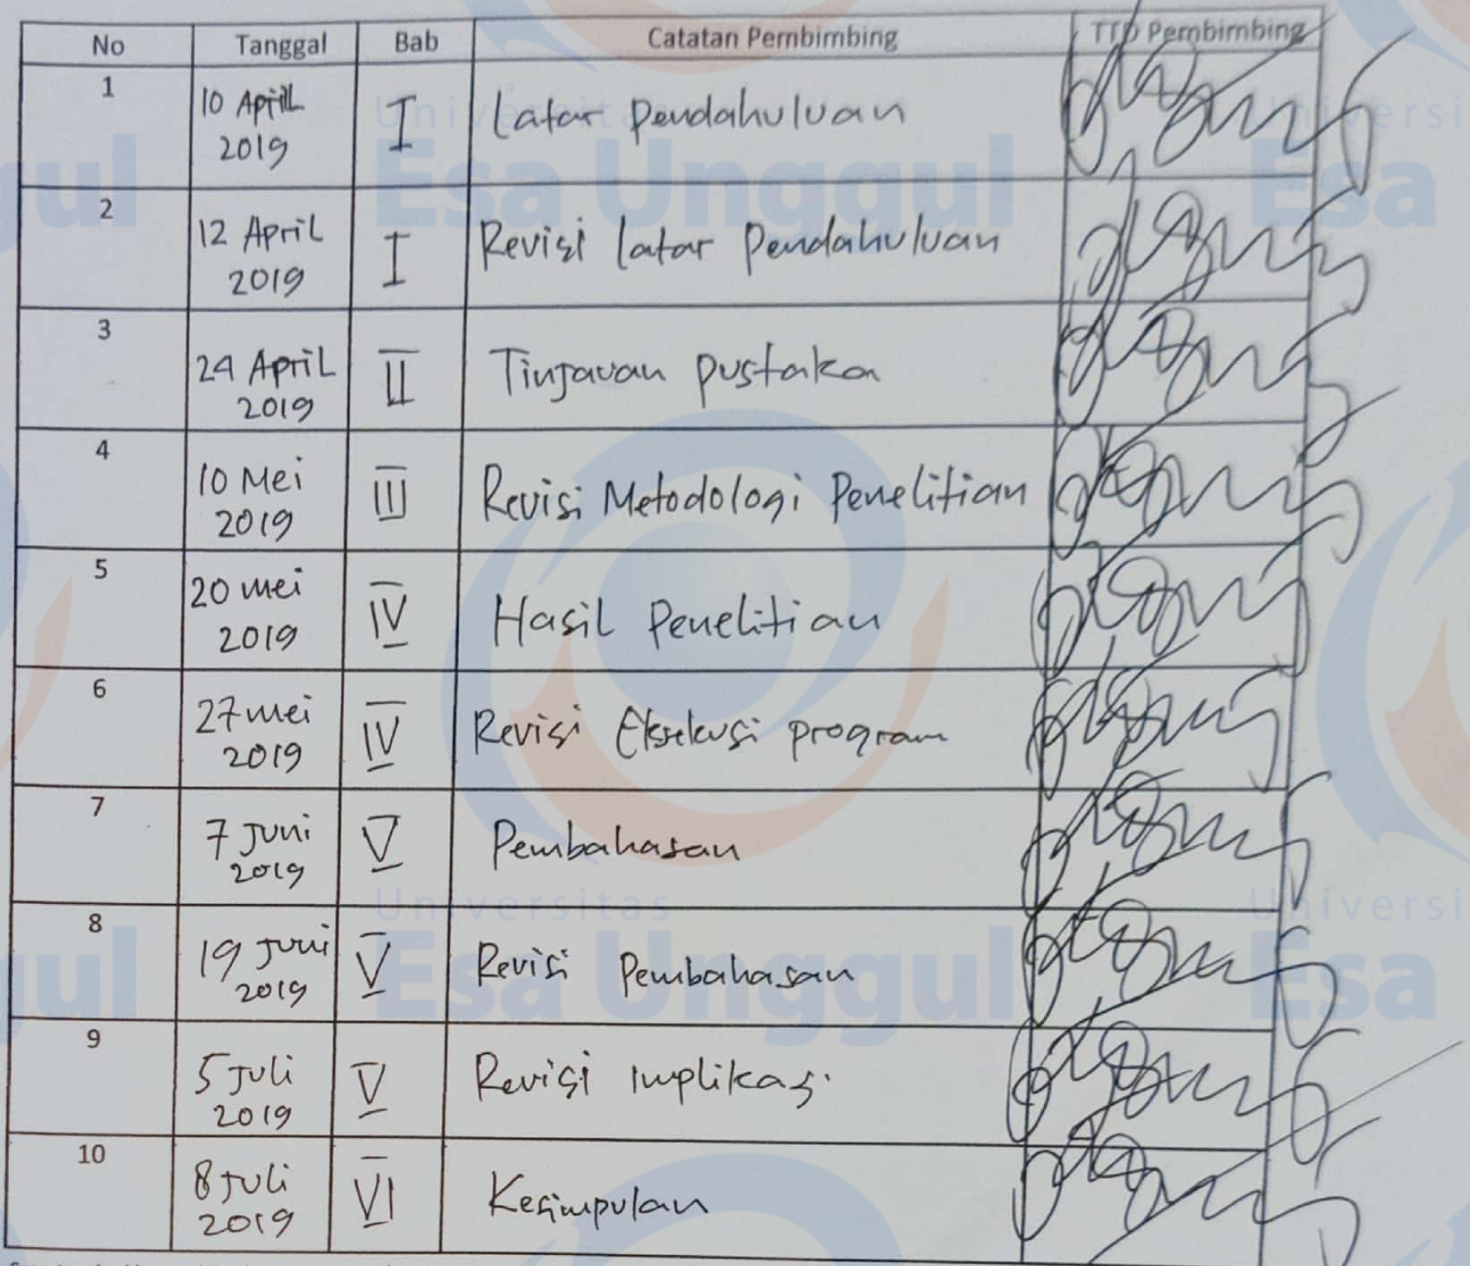 No Tanggal Bab Catatan Pembimbing TTD Pembimbing
1 10 April 2019 I Latar Pendahuluan
2 12 April 2019 I Revisi latar Pendahuluan
3 24 April 2019 II Tinjauan pustaka
4 10 Mei 2019 III Revisi Metodologi Penelitian
5 20 mei 2019 IV Hasil Penelitian
6 27 mei 2019 IV Revisi Eksekusi program
7 7 Juni 2019 V Pembahasan
8 19 Juni 2019 V Revisi Pembahasan
9 5 Juli 2019 V Revisi Implikasi
10 8 Juli 2019 VI Kesimpulan
Universitas
Esa Unggul
Universitas
Esa Unggul